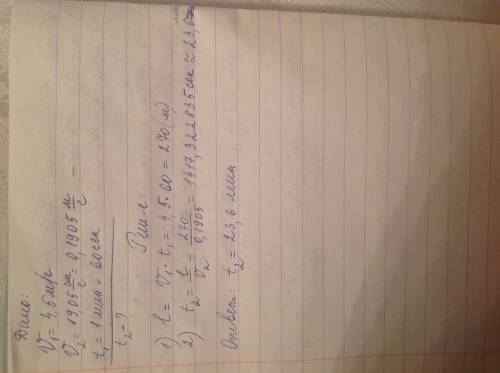 Дано:
V₁ = 4,5 м/с
V₂ = 19,05 см/с = 0,1905 м/с –
t₁ = 1 мин = 60 сек
t₂ - ?
Реш-е:
1) l = V₁ · t₁ = 4,5 · 60 = 270 (м)
2) t₂ = l/V₂ = 270/0,1905 = 1417,322835 сек ≈ 23,6 мин
Ответ: t₂ = 23,6 мин